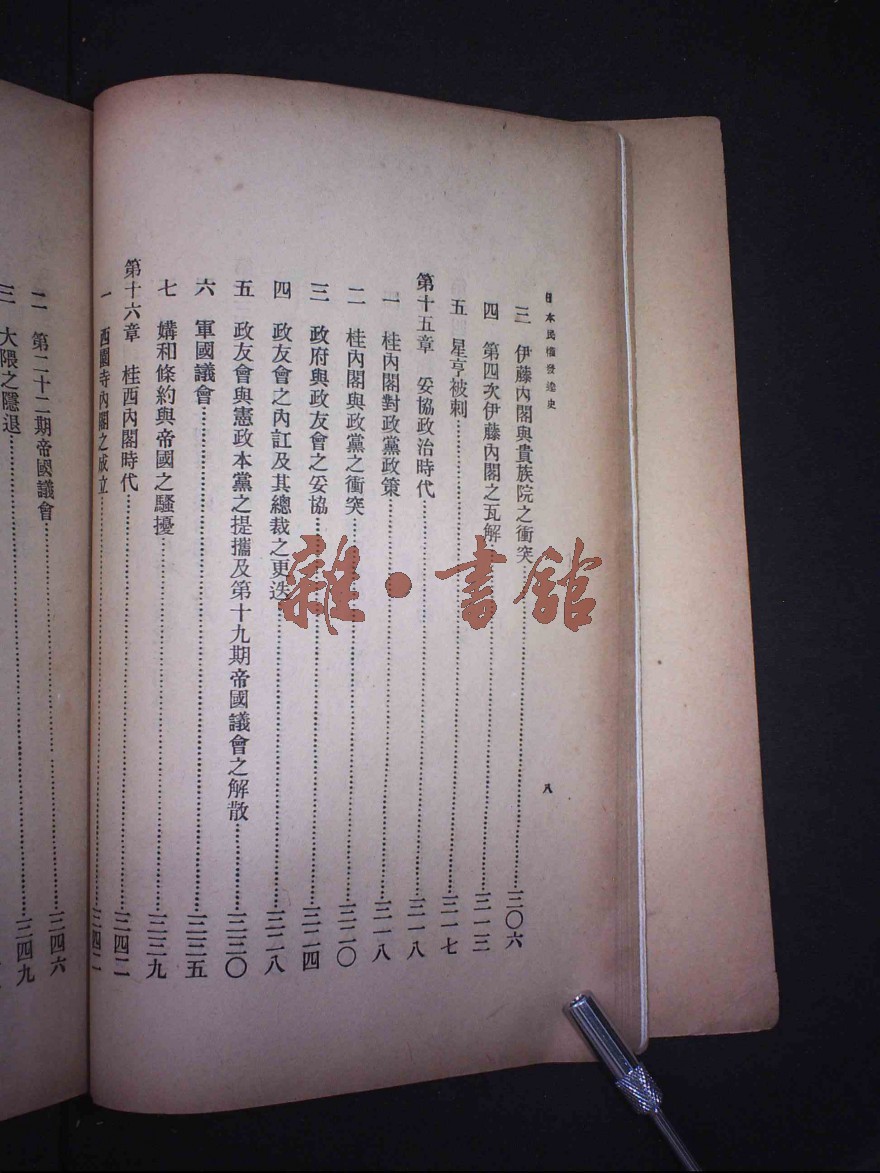 日本民權發達史
八
三 伊藤內閣與貴族院之衝突……三〇六
四 第四次伊藤內閣之瓦解……三一三
五 星亨被刺……三一七
第十五章 妥協政治時代……三一八
一 桂內閣對政黨政策……三一八
二 桂內閣與政黨之衝突……三二〇
三 政府與政友會之妥協……三二四
四 政友會之內訌及其總裁之更迭……三二八
五 政友會與憲政本黨之提攜及第十九期帝國議會之解散……三三〇
六 軍國議會……三三五
七 媾和條約與帝國之騷擾……三三九
第十六章 桂西內閣時代……三四二
一 西園寺內閣之成立……三四二
二 第二十二期帝國議會……三四六
三 大隈之隱退……三四九
雜·書館